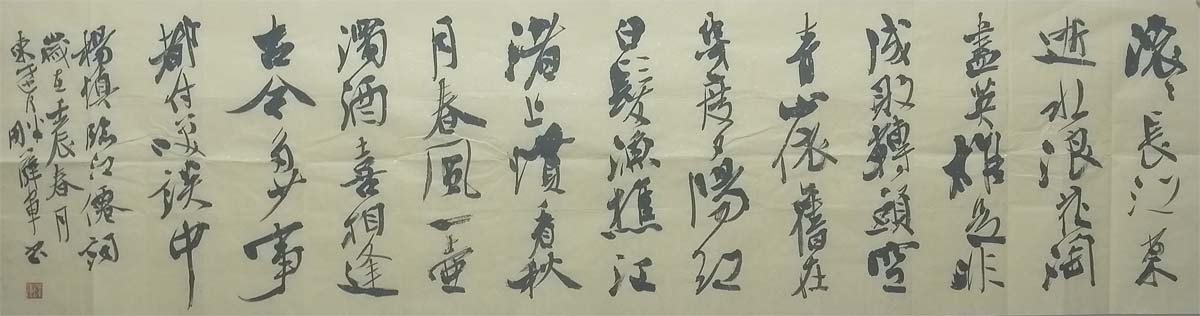 滚々長江東
逝水浪花淘
盡英雄是非
成敗轉頭空
青山依舊在
幾度夕陽紅
白髮漁樵江
渚上慣看秋
月春風一壺
濁酒喜相逢
古今多少事
都付笑談中
楊慎臨江僊詞
歲在壬辰春月